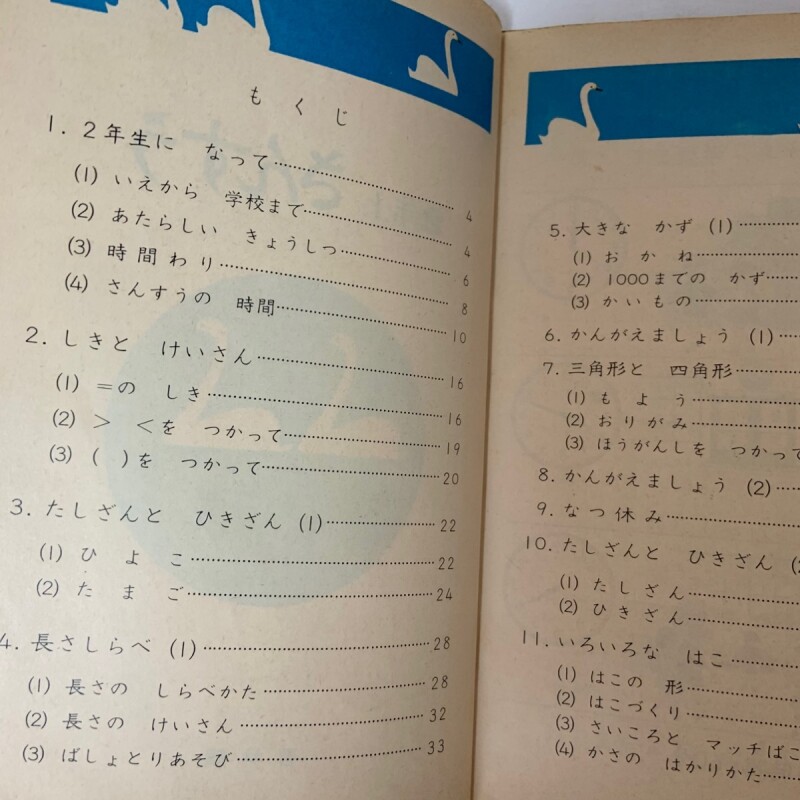 もくじ
1. 2年生に なって 4
(1) いえから 学校まで 4
(2) あたらしい きょうしつ 6
(3) 時間わり 8
(4) さんすうの 時間 10
2. しきと けいさん 16
(1) =の しき 16
(2) > <を つかって 19
(3) ( )を つかって 20
3. たしざんと ひきざん (1) 22
(1) ひよこ 22
(2) たまご 24
4. 長さしらべ (1) 28
(1) 長さの しらべかた 28
(2) 長さの けいさん 32
(3) ばしょとりあそび 33
5. 大きな かず (1)
(1) おかね
(2) 1000までの かず
(3) かいもの
6. かんがえましょう (1)
7. 三角形と 四角形
(1) もよう
(2) おりがみ
(3) ほうがんしを つかって
8. かんがえましょう (2)
9. なつ休み
10. たしざんと ひきざん
(1) たしざん
(2) ひきざん
11. いろいろな はこ
(1) はこの 形
(2) はこづくり
(3) さいころと マッチばこ
(4) かさの はかりかた